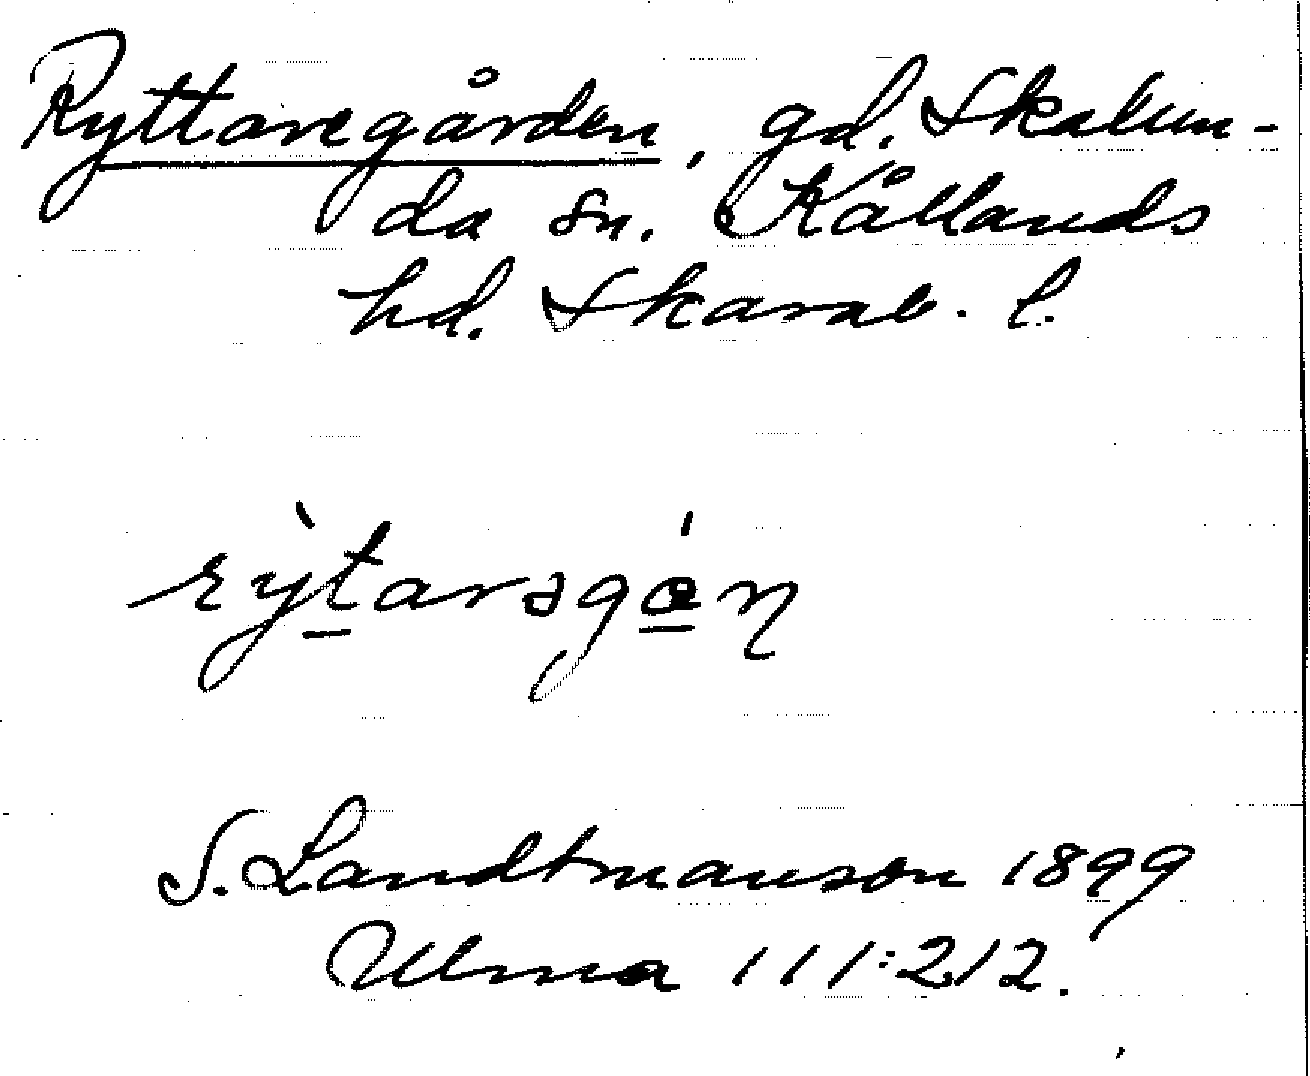 Ryttaregården, gd. Skalun-
da sn. Kållands
hd. Skarab. l.
rỳtarəgǻn̡
S. Landtmanson 1899
Ulma 111:212.